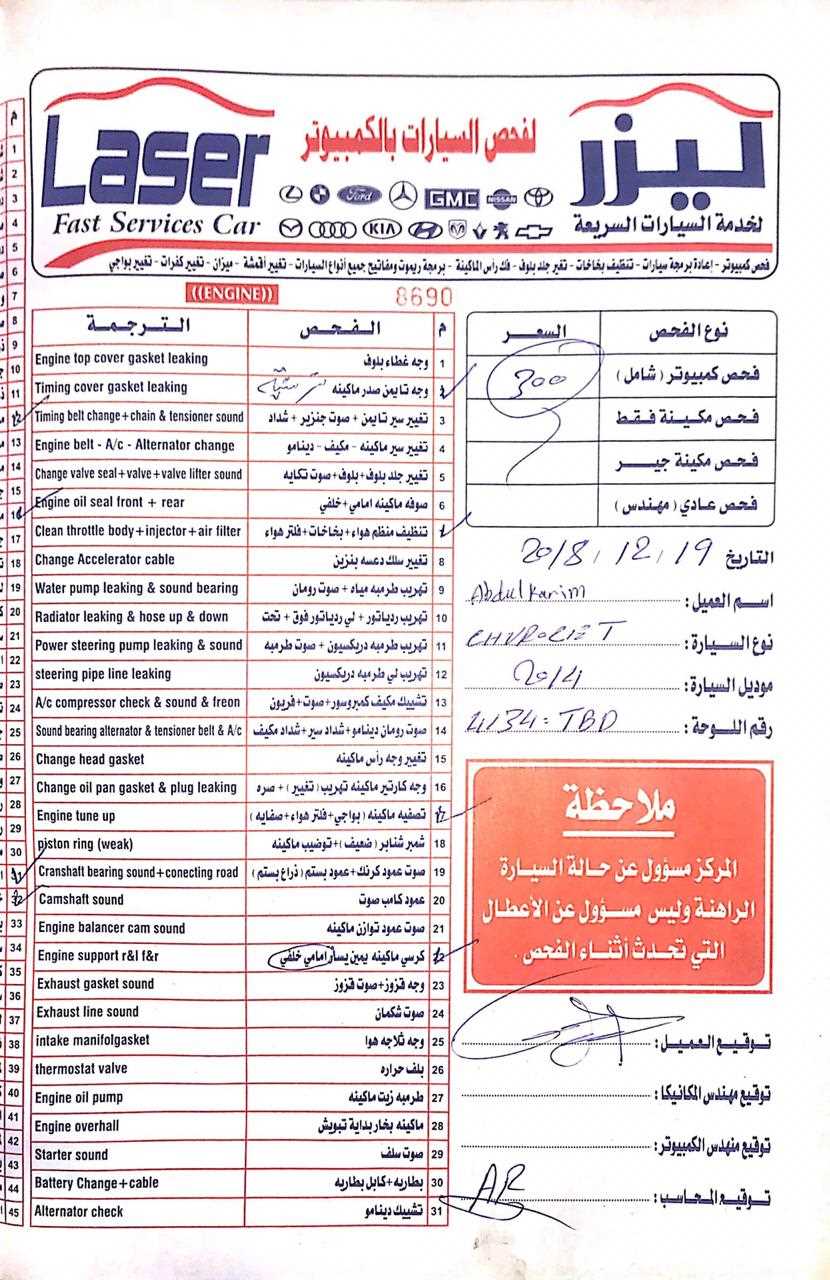 Laser
Fast Services Car
لفحص السيارات بالكمبيوتر
Ford GMC NISSAN
KIA
ليزر
لخدمة السيارات السريعة
فحص كمبيوتر - إعادة برمجة سيارات - تنظيف بخاخات - تغير جلد بلوف - فك رأس الماكينة - برمجة ريموت ومفاتيح جميع أنواع السيارات - تغيير أقمشة - ميزان - تغيير كفرات - تغيير بواجي
((ENGINE))
8690
م الفحص الترجمة
1 وجه غطاء بلوف Engine top cover gasket leaking
2 وجه تايمن صدر ماكينه Timing cover gasket leaking
3 تغيير سير تايمن + صوت جنزير + شداد Timing belt change+chain & tensioner sound
4 تغيير سير ماكينه - مكيف - دينامو Engine belt - A/c - Alternator change
5 تغيير جلد بلوف+بلوف+صوت تكايه Change valve seal+valve+valve lifter sound
6 صوفه ماكينه امامي+خلفي Engine oil seal front + rear
7 تنظيف منظم هواء+بخاخات+فلتر هواء Clean throttle body+injector+air filter
8 تغيير سلك دعسه بنزين Change Accelerator cable
9 تهريب طرمبه مياه + صوت رومان Water pump leaking & sound bearing
10 تهريب ردياتور+ لي ردياتور فوق + تحت Radiator leaking & hose up & down
11 تهريب طرمبه دريكسيون + صوت طرمبه Power steering pump leaking & sound
12 تهريب لي طرمبه دريكسيون steering pipe line leaking
13 تشييك مكيف كمبروسور+صوت+فريون A/c compressor check & sound & freon
14 صوت رومان دينامو+شداد سير+شداد مكيف Sound bearing alternator & tensioner belt & A/c
15 تغيير وجه رأس ماكينه Change head gasket
16 وجه كارتير ماكينه تهريب (تغيير) + صره Change oil pan gasket & plug leaking
17 تصفيه ماكينه (بواجي+فلتر هواء+صفايه) Engine tune up
18 شمبر شنابر (ضعيف)+توضيب ماكينه piston ring (weak)
19 صوت عمود كرنك+عمود بستم (ذراع بستم) Cranshaft bearing sound+conecting road
20 عمود كامب صوت Camshaft sound
21 صوت عمود توازن ماكينه Engine balancer cam sound
22 كرسي ماكينه يمين يسار امامي خلفي Engine support r&l f&r
23 وجه قزوز+صوت قزوز Exhaust gasket sound
24 صوت شكمان Exhaust line sound
25 وجه ثلاجه هوا intake manifolgasket
26 بلف حراره thermostat valve
27 طرمبه زيت ماكينه Engine oil pump
28 ماكينه بخار بداية تبويش Engine overhall
29 صوت سلف Starter sound
30 بطاريه+كابل بطاريه Battery Change+cable
31 تشييك دينامو Alternator check
نوع الفحص السعر
فحص كمبيوتر (شامل) 300
فحص مكينة فقط
فحص مكينة جير
فحص عادي (مهندس)
التاريخ 2018,12,19
اسم العميل: Abdulkarim
نوع السيارة: CHVROCIET
موديل السيارة: 2014
رقم اللوحة: 4134: TBD
ملاحظة
المركز مسؤول عن حالة السيارة
الراهنة وليس مسؤول عن الأعطال
التي تحدث أثناء الفحص.
توقيع العميل:
توقيع مهندس المكانيكا:
توقيع منهدس الكمبيوتر:
توقيع المحاسب: AR
م
1
2
3
4
5
6
7
8
9
10
11
12
13
14
15
16
17
18
19
20
21
22
23
24
25
26
27
28
29
30
33
34
35
36
37
38
39
40
41
42
43
44
45